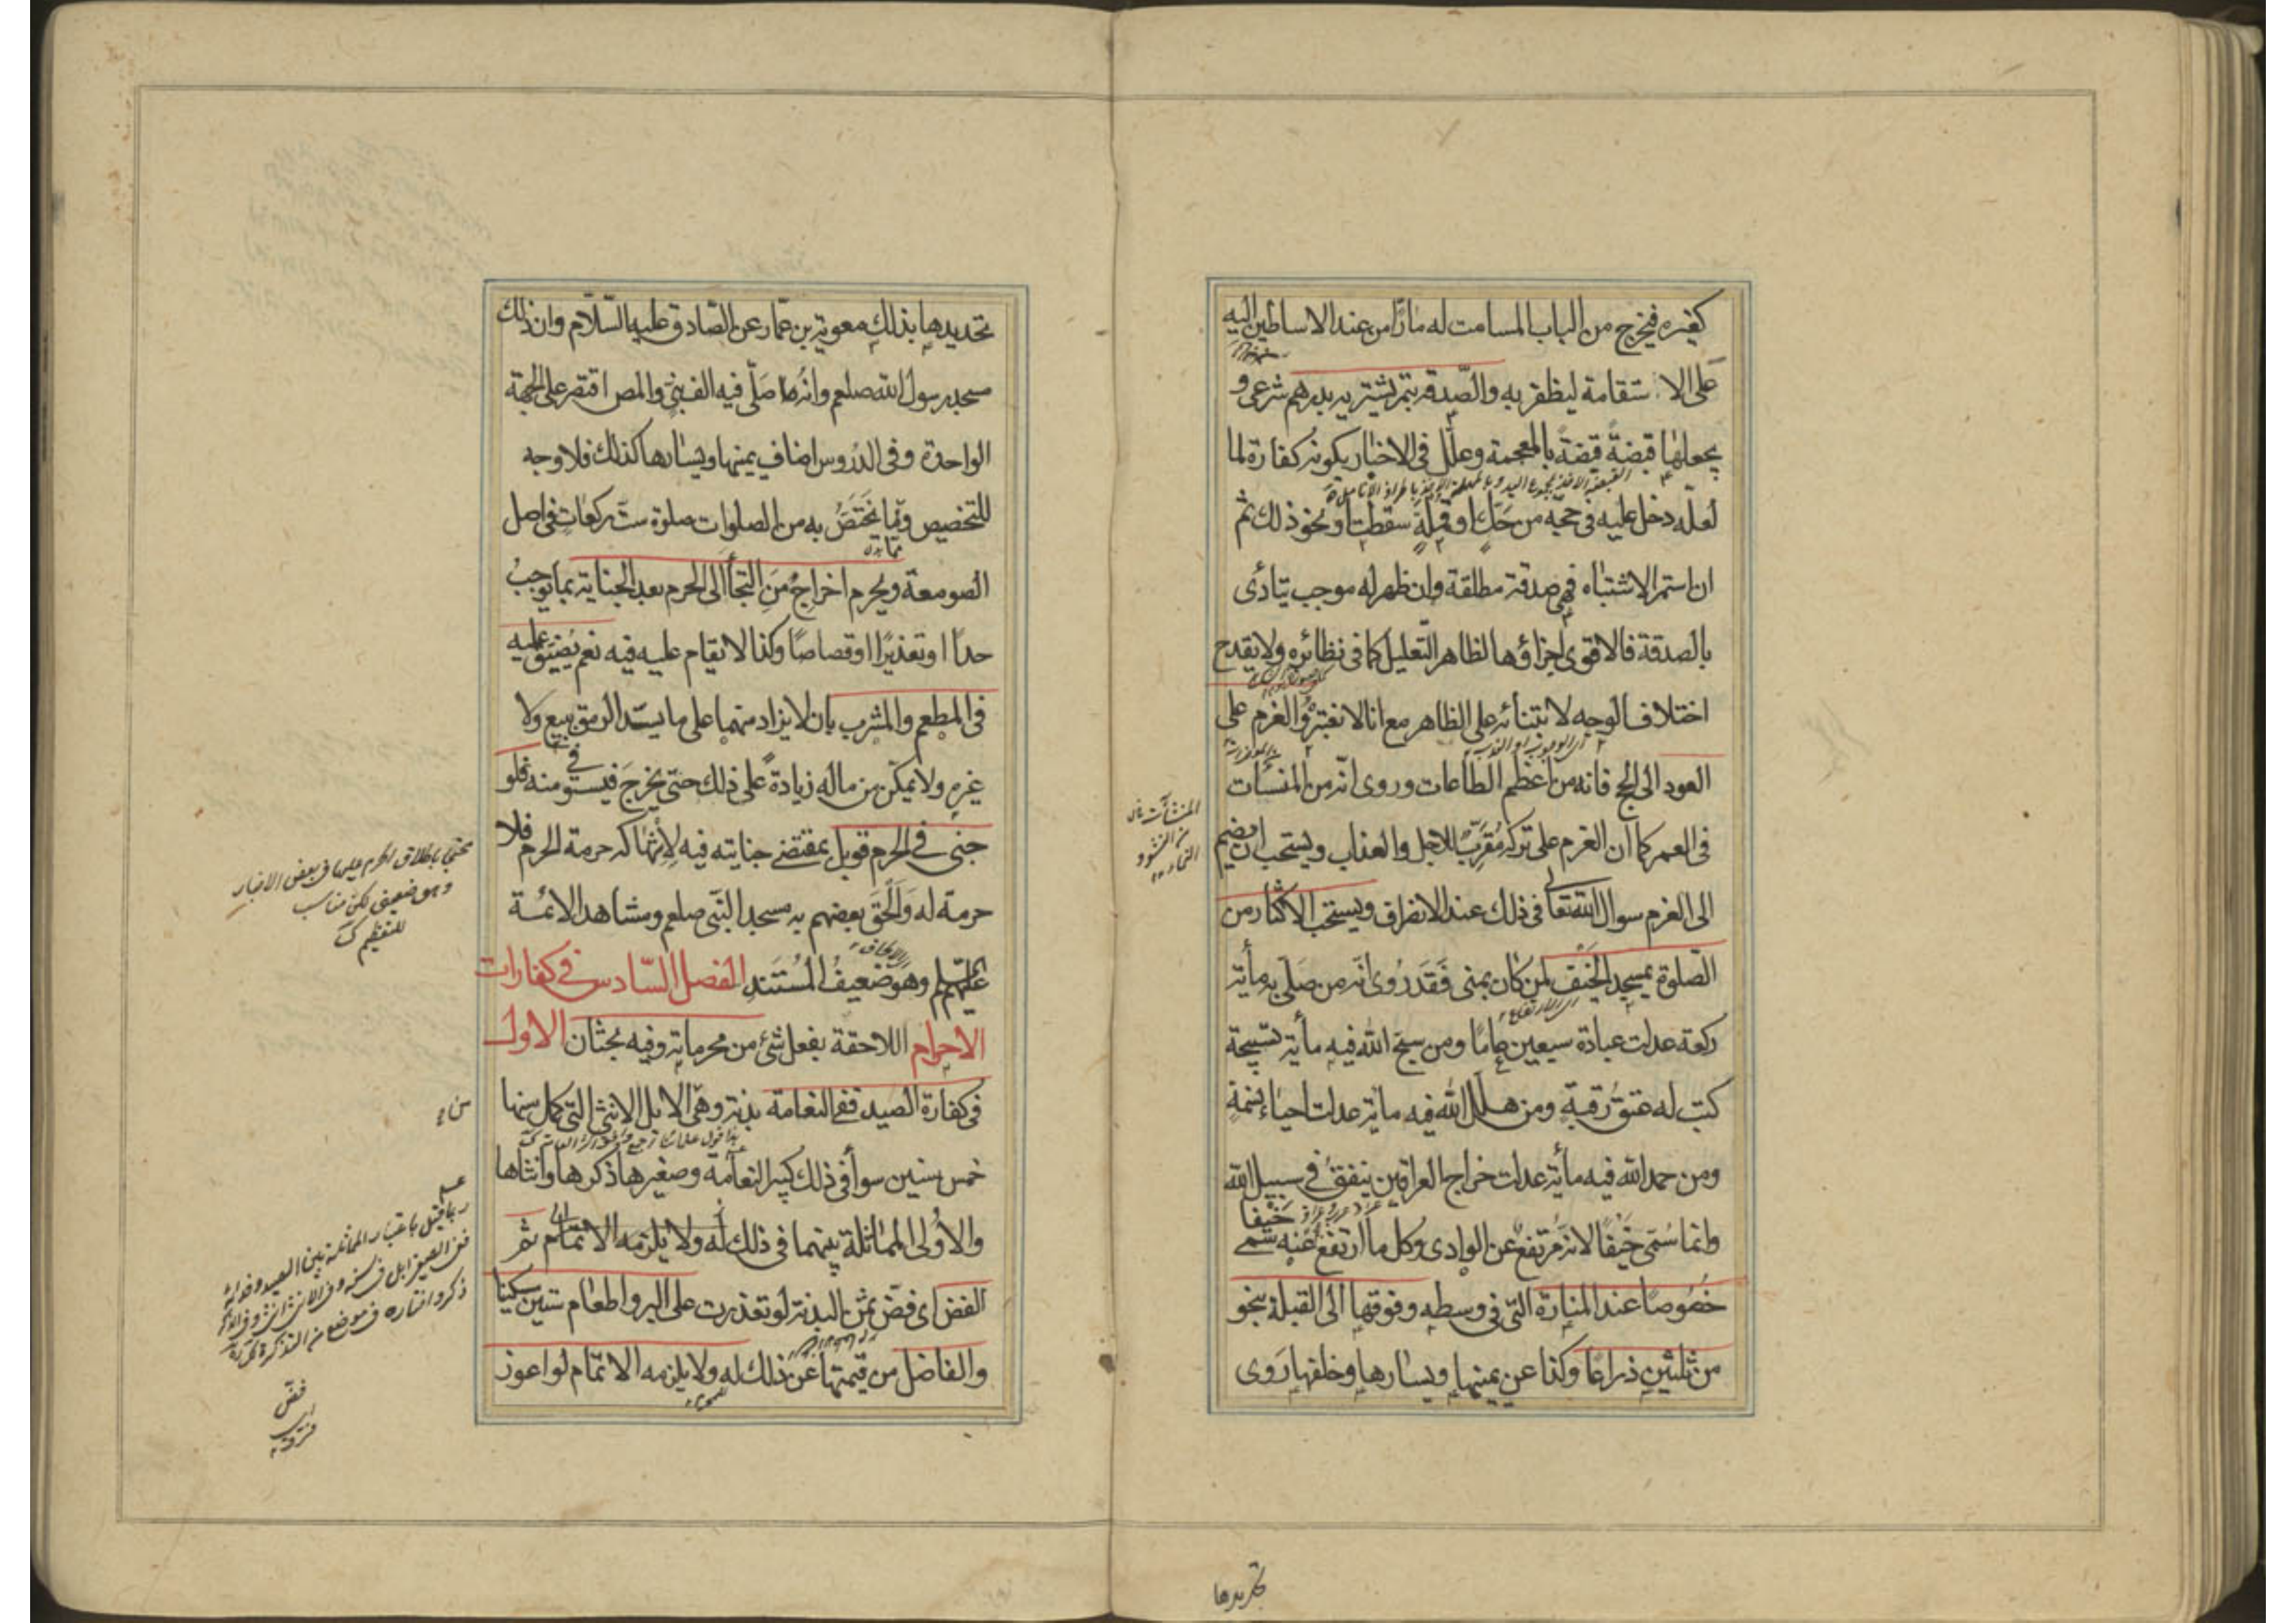 كغيره فيخرج من الباب المسامت له مارّا من عند الاساطين اليه
على الاستقامة ليظفر به والصّدقة بتمر يشتريه بدرهم شرعى و
يجعلها قبضةً قبضةً بالمعجمة وعلّل فى الاخبار بكونه كفارة لما
لعله دخل عليه فى حجه من حكٍّ او قملةٍ سقطت او نحو ذلك ثم
ان استمر الاشتباه فهى صدقة مطلقة وان ظهر له موجب يتأدى
بالصدقة فالاقوى اجزاؤها لظاهر التّعليل كما فى نظائره ولا يقدح
اختلاف الوجه لابتنائه على الظاهر مع انا لا نعتبره والعزم على
العود الى الحج فانه من اعظم الطاعات وروى انّه من المنسئات
فى العمر كما ان العزم على تركه مُقرّبٌ للاجل والعذاب ويستحب ان يضم
الى العزم سوال الله تعالى فى ذلك عند الانصراف ويستحب الاكثار من
الصّلوة بمسجد الخيف لمن كان بمنى فقد روى انّه من صلّى به مأية
ركعة عدلت عبادة سبعين عامًا ومن سبّح الله فيه مأية تسبيحة
كتب له عتق رقبةٍ ومن هلّل الله فيه مأية عدلت احياء نسمةٍ
ومن حمد الله فيه مأية عدلت خراج العراقين ينفق فى سبيل الله
وانما سُمّى خَيفًا لانّه مرتفع عن الوادى وكل ما ارتفع عنه سُمى خَيفا
خصُوصًا عند المنارة التّى فى وسطه وفوقها الى القبلة بنحو
من ثلثين ذراعًا وكذا عن يمينها ويسارها وخلفها رَوى
المنشآت
تحديدها
تحديدها بذلك معوية بن عمّار عن الصّادق عليه السّلام وان ذلك
مسجد رسول الله صلعم وانّه صلّى فيه الف نبىّ والمص اقتصر على الجهة
الواحدة وفى الدّروس اضاف يمينها ويسارها كذلك فلا وجه
للتخصيص وممّا يختصّ به من الصلوات صلوة ستّ ركعات فى اصل
الصومعة ويحرم اخراجُ مَنِ التجأ الى الحرم بعد الجناية بما يوجب
حدًا او تعذيرًا او قصاصًا وكذا لا يقام عليه فيه نعم يُضيّق عليه
فى المطعم والمشرب بان لا يزاد منهما على ما يسدّ الرمق ببيع ولا
غيره ولا يمكّن من ماله زيادةً على ذلك حتّى يخرج فيستوفى منه فلو
جنى فى الحرم قوبل بمقتضى جنايته فيه لانتهاكه حرمة الحرم فلا
حرمة له والحق بعضهم به مسجد النّبى صلعم ومشاهد الائمة
عليهم السلم وهو ضعيفُ المُستَند الفصل السّادس فى كفارات
الاحرام اللاحقة بفعل شئ من محرماته وفيه بحثان الاول
فى كفارة الصيد ففى النعامة بدنة وهى من الابل الانثى التى كمل سنها
خمس سنين سوأ فى ذلك كبير النعامة وصغيرها ذكرها وانثاها
والاولى المماثلة بينهما فى ذلك ثم
الفض اى فضّ ثمن البدنة لو تعذرت على البر واطعام ستين مسكينا
والفاضل من قيمتها عن ذلك له ولا يلزمه الاتمام لو اعوز
محتجًا باطلاق الحرم عليها فى بعض الاخبار
وهو ضعيف لكن مناسب
للتعظيم